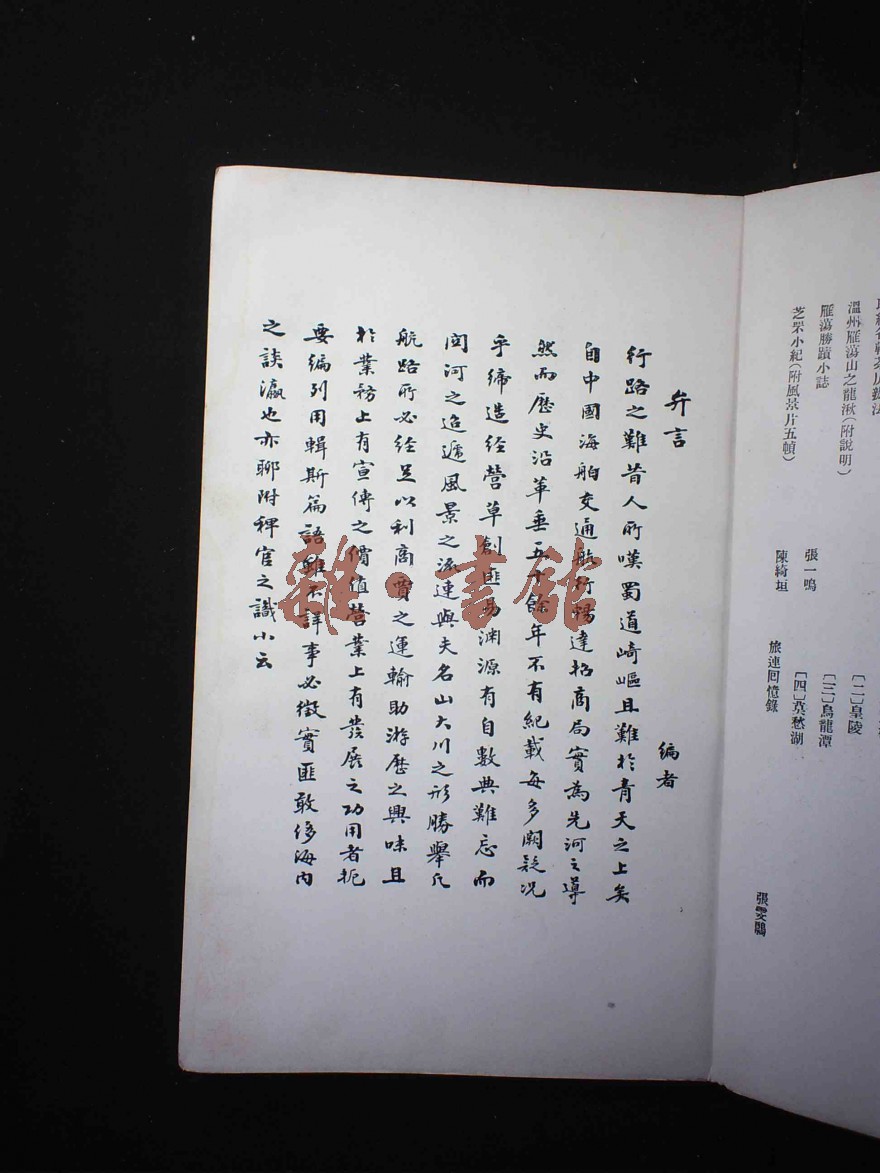 溫州雁蕩山之龍湫(附說明)
雁蕩勝蹟小誌
張一鳴
芝罘小紀(附風景片五幀)
陳綺垣
[二]皇陵
[三]烏龍潭
[四]莫愁湖
旅連回憶錄
張雯鶠
弁言
編者
行路之難昔人所嘆蜀道崎嶇且難於青天之上矣
自中國海舶交通航行暢達招商局實為先河之導
然而歷史沿革垂五十餘年不有紀載每多闕疑况
乎締造經營草創匪易淵源有自數典難忘而
関河之迢遞風景之流連與夫名山大川之形勝舉凡
航路所必經足以利商賈之運輸助游歷之興味且
於業務上有宣傳之價值營業上有發展之功用者扼
要編列用輯斯篇語雖不詳事必徵實匪敢侈海內
之談瀛也亦聊附稗官之識小云
雜·書館